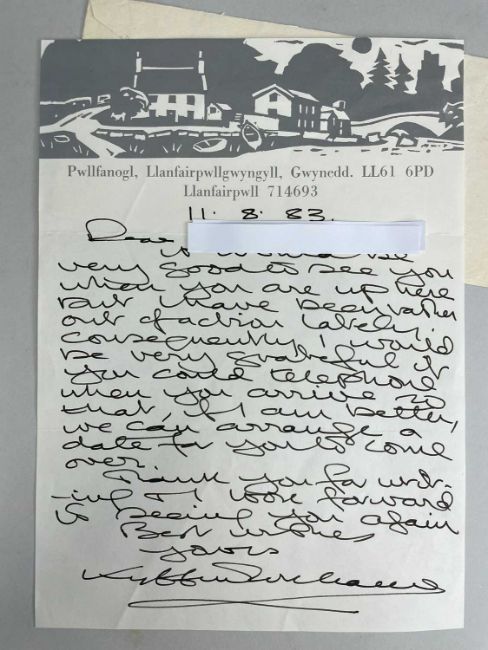 Pwllfanogl, Llanfairpwllgwyngyll, Gwynedd. LL61 6PD
Llanfairpwll 714693
11. 8. 83.
Dear
it would be
very good to see you
when you are up here
but I have been rather
out of action lately;
consequently I would
be very grateful if
you could telephone
when you arrive so
that, if I am better,
we can arrange a
date for you to come
over.
Thank you for writ-
-ing & I look forward
to seeing you again
Best wishes
yours
Kyffin Williams